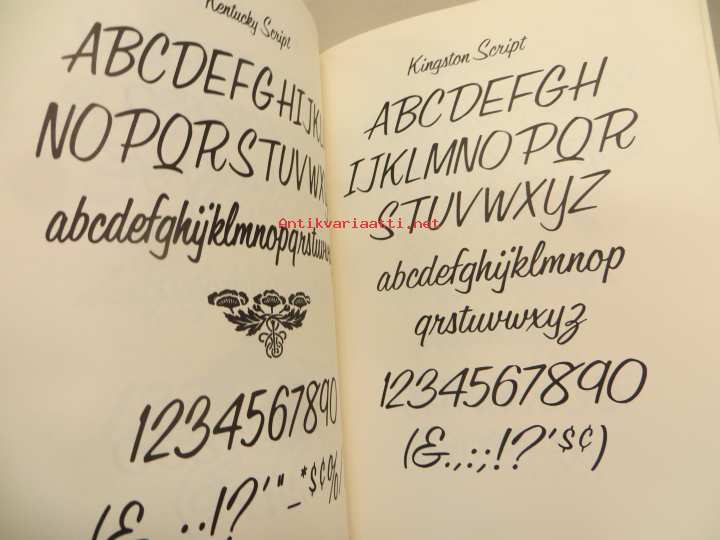 Kentucky Script
ABCDEFGHIJKL
NOPQRSTUVWX
abcdefghijklmnopqrstuvw
1234567890
(&.,:;!?'"-*$¢%/
Kingston Script
ABCDEFGH
IJKLMNOPQR
STUVWXYZ
abcdefghijklmnop
qrstuvwxyz
1234567890
(&.,:;!?'$¢)
Antikvariaatti.net